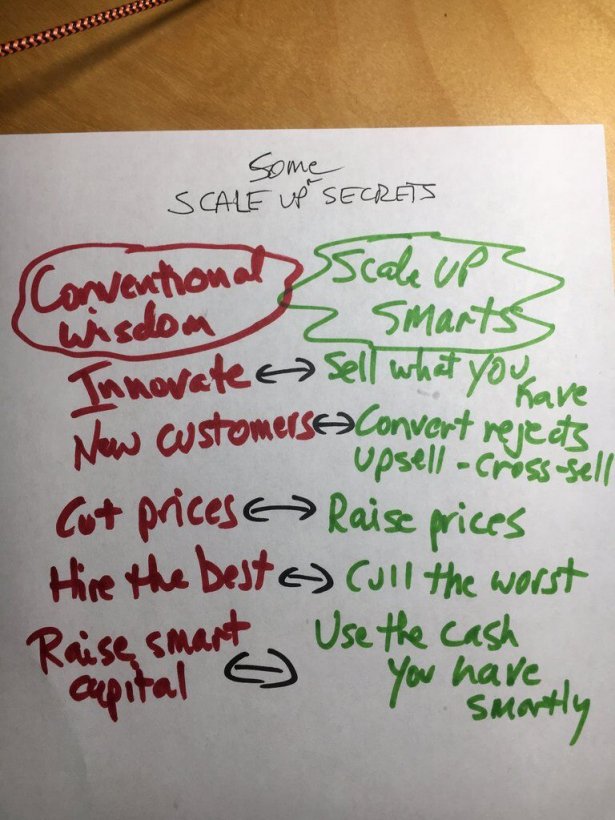 Some
SCALE UP SECRETS
Conventional wisdom
Scale UP SMARTS
Innovate ↔ Sell what you have
New customers ↔ Convert rejects
upsell - cross-sell
Cut prices ↔ Raise prices
Hire the best ↔ Cull the worst
Raise smart capital ↔ Use the cash you have smartly